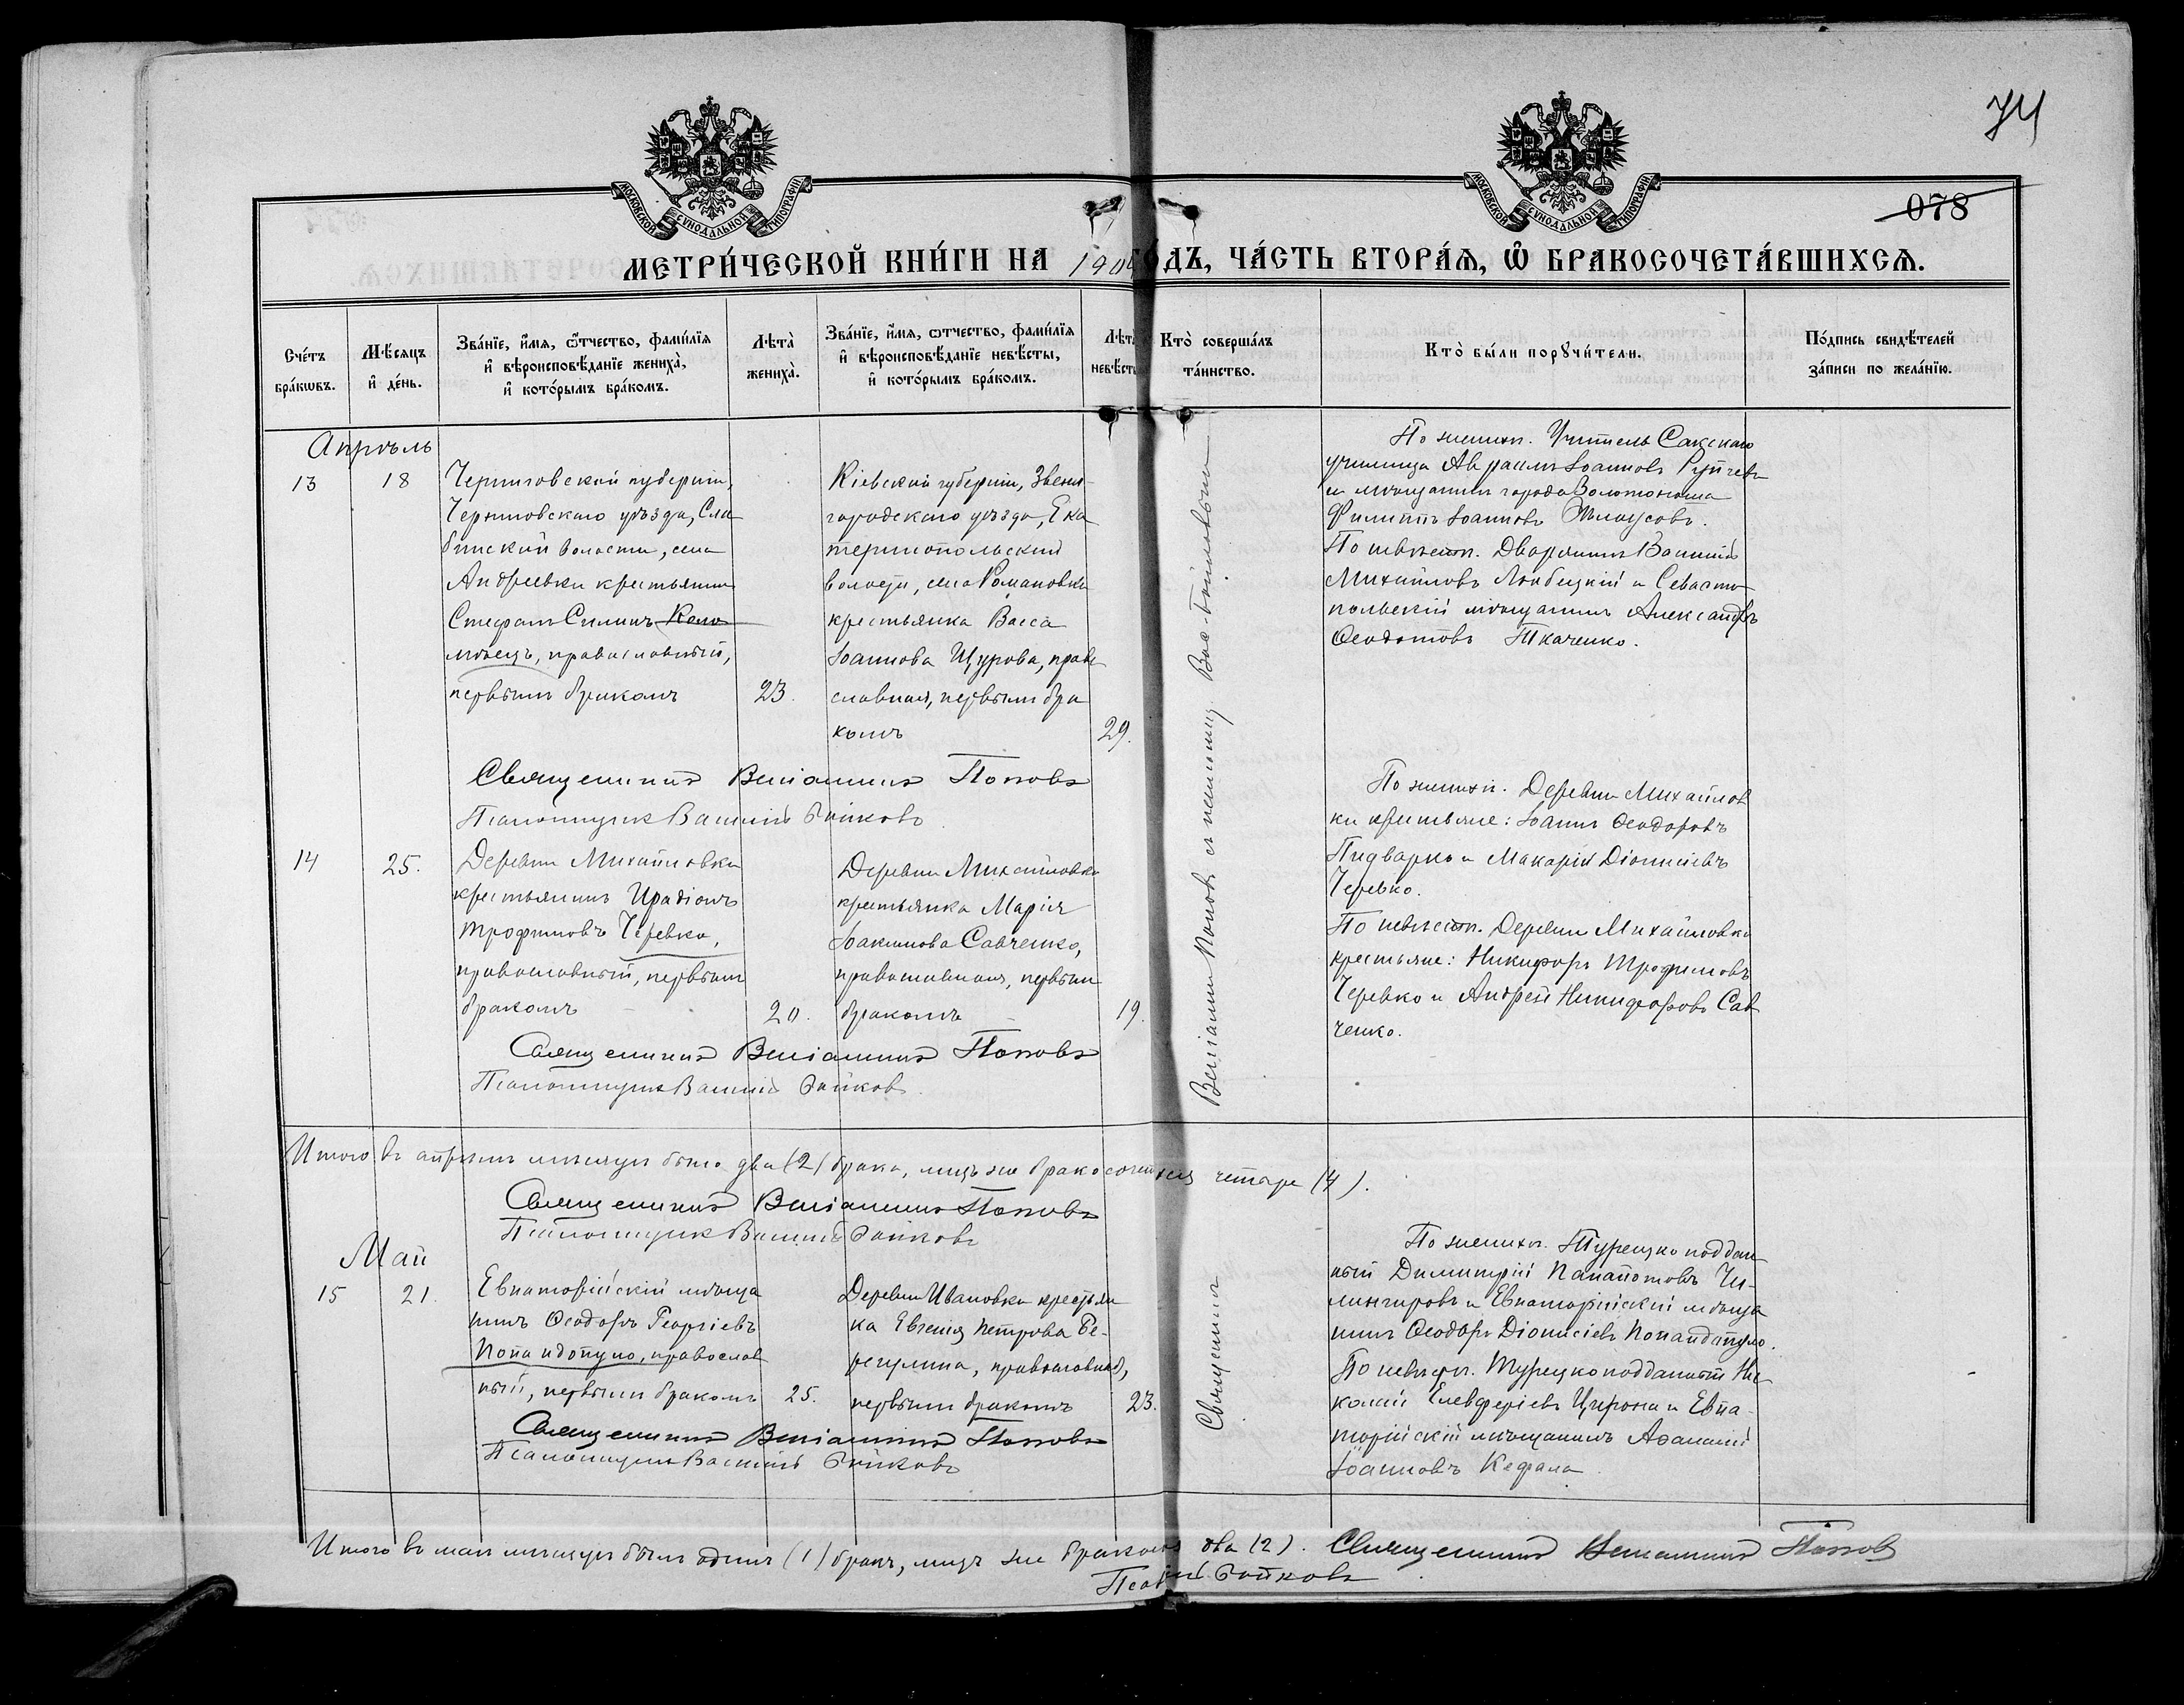 74
078
МОСКОВСКОЙ СѴНОДАЛЬНОЙ ТИПОГРАФІИ
МОСКОВСКОЙ СѴНОДАЛЬНОЙ ТИПОГРАФІИ
МЕТРИ́ЧЕСКОЙ КНИ́ГИ НА 190 ГО́ДЪ, ЧА́СТЬ ВТОРА́Ѧ, Ѽ БРАКОСОЧЕТА́ВШИХСѦ.
Сче́тъ бра́кѡвъ.
Мѣ́сяцъ и҆ де́нь.
Зва́нїе, и҆́мѧ, ѻ҆́тчество, фами́лїѧ
и҆ вѣроисповѣ́данїе жениха̀,
и҆ кото́рымъ бра́комъ.
Лѣта̀ жениха̀.
Зва́нїе, и҆́мѧ, ѻ҆тчество, фами́лїѧ
и҆ вѣроисповѣ́данїе невѣ́сты,
и҆ кото́рымъ бра́комъ.
Лѣта̀ невѣ́сты
Кто̀ соверша́лъ та́инство.
Кто̀ бы́ли порꙋчи́тели.
По́дпись свидѣ́телей за́писи по жела́нїю.
Апрѣль
13
18
Черниговской губерніи,
Черниговскаго уѣзда, Сла
бинской волости, села
Андреевки крестьянинъ
Стефанъ Силинъ Коло
міецъ, православный,
первымъ бракомъ
23.
Кіевской губерніи, Звени-
городскаго уѣзда, Ека
теринопольской
волости, села Романовки
крестьянка Васса
Іоаннова Щурова, право
славная, первымъ бра
комъ
29.
Священникъ Веніаминъ Поповъ
Псаломщикъ Василій Бойковъ
По женихѣ. Учитель Сакскаго
училища Авраамъ Іоанновъ
и мѣщанинъ города Золотоноша
Филиппъ Іоанновъ
По невѣстѣ. Дворянинъ Василій
Михайловъ Любецкій и Севасто
польскій мѣщанинъ Александръ
Ѳеодотовъ Ткаченко.
14
25.
Деревни Михайловки
крестьянинъ Иродіонъ
Трофимовъ Черевко,
православный, первымъ
бракомъ
20.
Деревни Михайловки
крестьянка Марія
Іоакимова Савченко,
православная, первымъ
бракомъ
19.
Священникъ Веніаминъ Поповъ
Псаломщикъ Василій Бойковъ
По женихѣ. Деревни Михайлов
ки крестьяне: Іоаннъ Ѳеодоровъ
Пидварко и Макарій Діонисіевъ
Черевко.
По невѣстѣ. Деревни Михайловки
крестьяне: Никифоръ Трофимовъ
Черевко и Андрей Никифоровъ Сав
ченко.
Священникъ Веніаминъ Поповъ съ псаломщ. Вас. Бойковымъ
Итого въ апрѣлѣ мѣсяцѣ было два (2) брака, лицъ же бракосочетхся четыре (4).
Священникъ Веніаминъ Поповъ
Псаломщикъ Василій Бойковъ
Май
15
21.
Евпаторійскій мѣща
нинъ Ѳеодоръ Георгіевъ
Попандопуло, православ
ный, первымъ бракомъ
25.
Деревни Ивановки крестьян
ка Евгенія Петрова Бе-
регулина, православная,
первымъ бракомъ
23.
Священникъ Веніаминъ Поповъ
Псаломщикъ Василій Бойковъ
По женихѣ. Турецко поддан
ный Димитрій Панайотовъ Чи-
лингировъ и Евпаторійскій мѣща
нинъ Ѳеодоръ Діонисіевъ Попандопуло.
По невѣстѣ. Турецкоподданный Ни
колай Елевферіевъ Цирона и Евпа-
торійскій мѣщанинъ Аѳанасій
Іоанновъ Кефала
Итого въ маѣ мѣсяцѣ былъ одинъ (1) бракъ, лицъ же два (2). Священникъ Веніаминъ Поповъ
Бойковъ